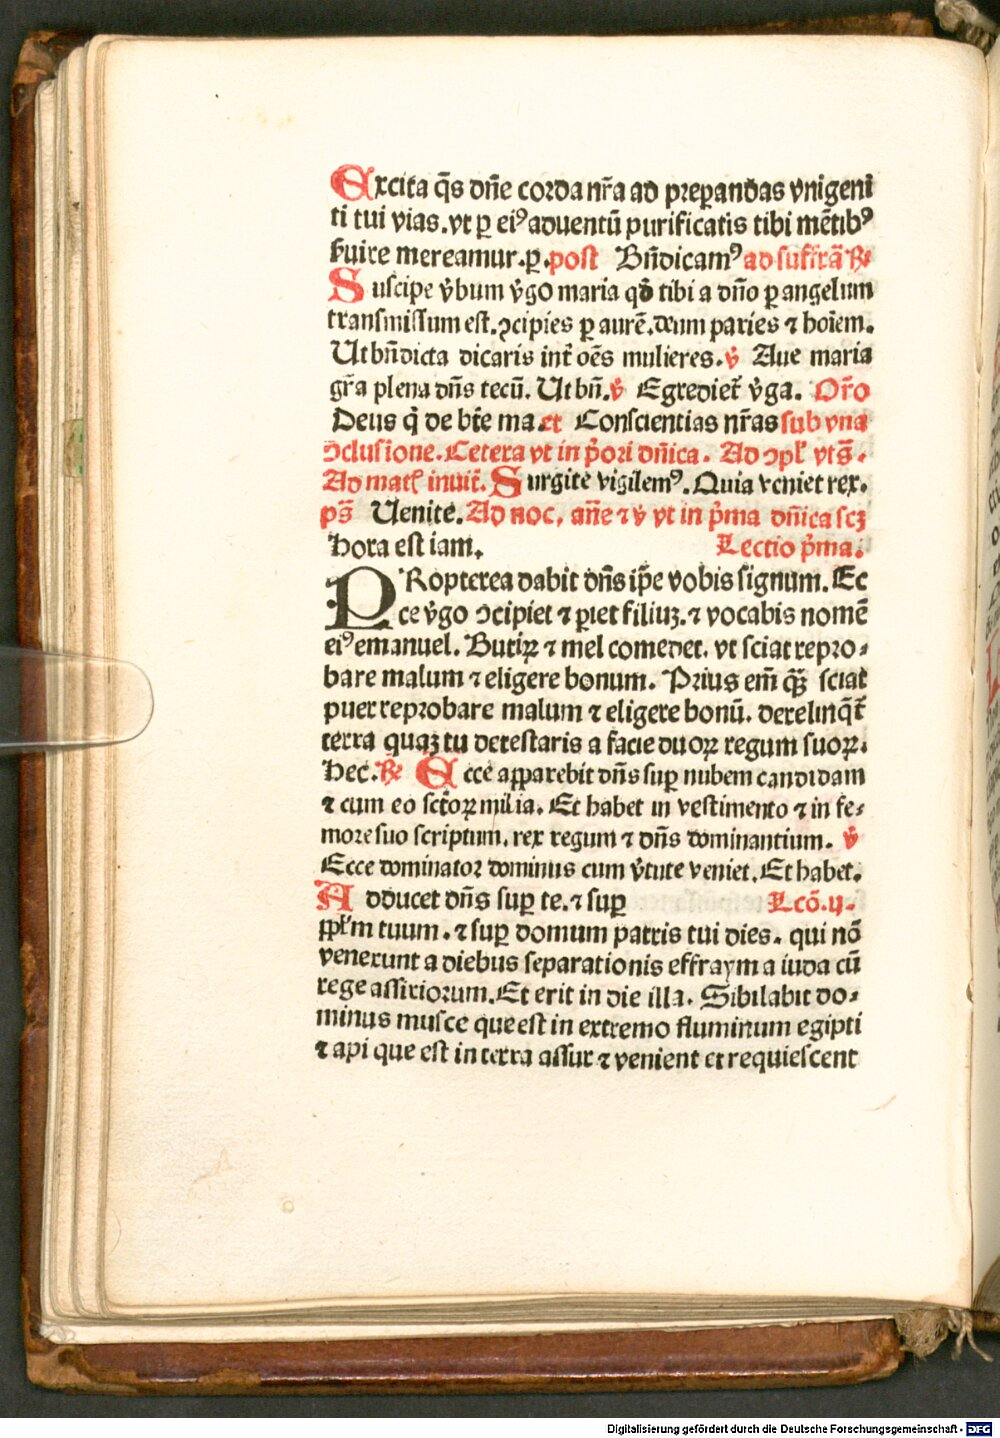 Excita q̄s dn̄e corda nr̄a ad preparandas vnigeni
ti tui vias. vt ꝑ eiꝰ aduentū purificatis tibi mētibꝰ
ſuire mereamur. ꝑ. poſt Bn̄dicamꝰ ad suffrā ℟
Suſcipe v̄bum v̄go maria qḋ tibi a dn̄o ꝑ angelum
tranſmiſſum eſt. ↄcipies ꝑ aurē. deum paries ⁊ hoīem.
Ut bn̄dicta dicaris int̄ oēs mulieres. ℣ Aue maria
gr̄a plena dn̄s tecū. Ut bn̄. ℣ Egrediet̄ v̄ga. Or̄o
Deus q̄ de bt̄e ma. et Conſcientias nr̄as sub vna
ↄcluſione. Cetera vt in p̄ori dn̄ica. Ad ↄpl̄ vts̄.
Ad mat̄ inuit̄. Surgite vigilemꝰ. Quia veniet rex.
ps̄ Uenite. Ad noc. an̄e ⁊ ℣ vt in p̄ma dn̄ica ſcꝫ
Hora eſt iam. Lectio p̄ma.
PRopterea dabit dn̄s ip̄e vobis ſignum. Ec
ce v̄go ↄcipiet ⁊ ꝑiet filiuꝫ. ⁊ vocabis nomē
eiꝰ emanuel. Butiꝝ ⁊ mel comedet. vt ſciat repro-
bare malum ⁊ eligere bonum. Prius em̄ qꝫ̄ ſciat
puer reprobare malum ⁊ eligere bonū. derelinq̄t̄
terra quaꝫ tu deteſtaris a facie duoꝝ regum suoꝝ.
Hec. ℟ Ecce apparebit dn̄s ſuꝑ nubem candidam
⁊ cum eo ſct̄oꝝ milia. Et habet in veſtimento ⁊ in fe-
more ſuo ſcriptum. rex regum ⁊ dn̄s dominantium. ℣
Ecce dominator dominus cum v̄tute veniet. Et habet.
Adducet dn̄s ſuꝑ te. ⁊ ſuꝑ Lcō. ij.
ppl̄m tuum. ⁊ ſuꝑ domum patris tui dies. qui nō
venerunt a diebus ſeparationis effraym a iuda cū
rege aſſiriorum. Et erit in die illa. Sibilabit do-
minus muſce que eſt in extremo fluminum egipti
⁊ api que eſt in terra aſſur ⁊ venient et requieſcent
Digitalisierung gefördert durch die Deutsche Forschungsgemeinschaft - DFG